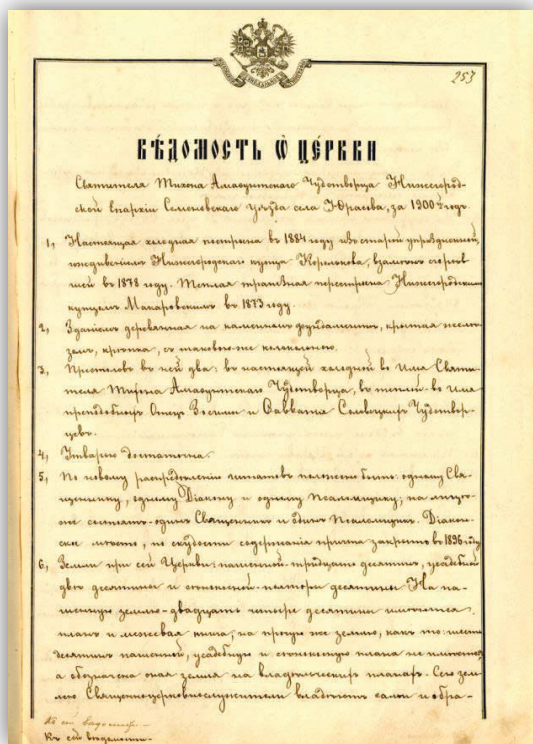 253
ВѢ́ДОМОСТЬ Ѡ҆ ЦЕ́РКВИ
Святителя Тихона Амафунтскаго Чудотворца Нижегород-
ской Епархіи Семеновскаго уѣзда села Юрасова, за 1900й годъ
1, Настоящая холодная построена въ 1884 году изъ старой упраздненной,
иждивеніемъ Нижегородскаго купца Корелькова, взамѣнъ сгорѣв
шей въ 1878 году. Теплая трапезная перестроена Нижегородскимъ
купцемъ Макаровскимъ въ 1873 году.
2, Зданіемъ деревянная на каменномъ фундаментѣ, крытая желѣ-
зомъ, крѣпка, съ таковою же колокольнею.
3, Престоловъ въ ней два: въ настоящей холодной во имя Святи-
теля Тихона Амафунтскаго Чудотворца, въ теплой во имя
преподобныхъ Отецъ Зосимы и Савватія Соловецкихъ Чудотвор-
цевъ.
4, Утварью достаточна.
5, По новому распредѣленію штатовъ положено быть: одному Свя-
щеннику, одному Діакону и одному Псаломщику; на лицо
же состоятъ одинъ Священникъ и одинъ Псаломщикъ. Діакон-
ское мѣсто, по скудости содержанія причта закрыто въ 1896 году
6, Земли при сей Церкви: пашенной тридцать десятинъ, усадебной
двѣ десятины и сѣнокосной полторы десятины. На па-
шенную землю двадцать четыре десятины имѣются
планъ и межевая книга, на прочую же землю, какъ то: шесть
десятинъ пашенной, усадебную и сѣнокосную плана не имѣется,
а обозначена оная земля на владѣльческихъ планахъ. Сею зем-
лею Священноцерковнослужители владѣютъ сами и обра-
Къ сей вѣдомости
Къ сей вѣдомости